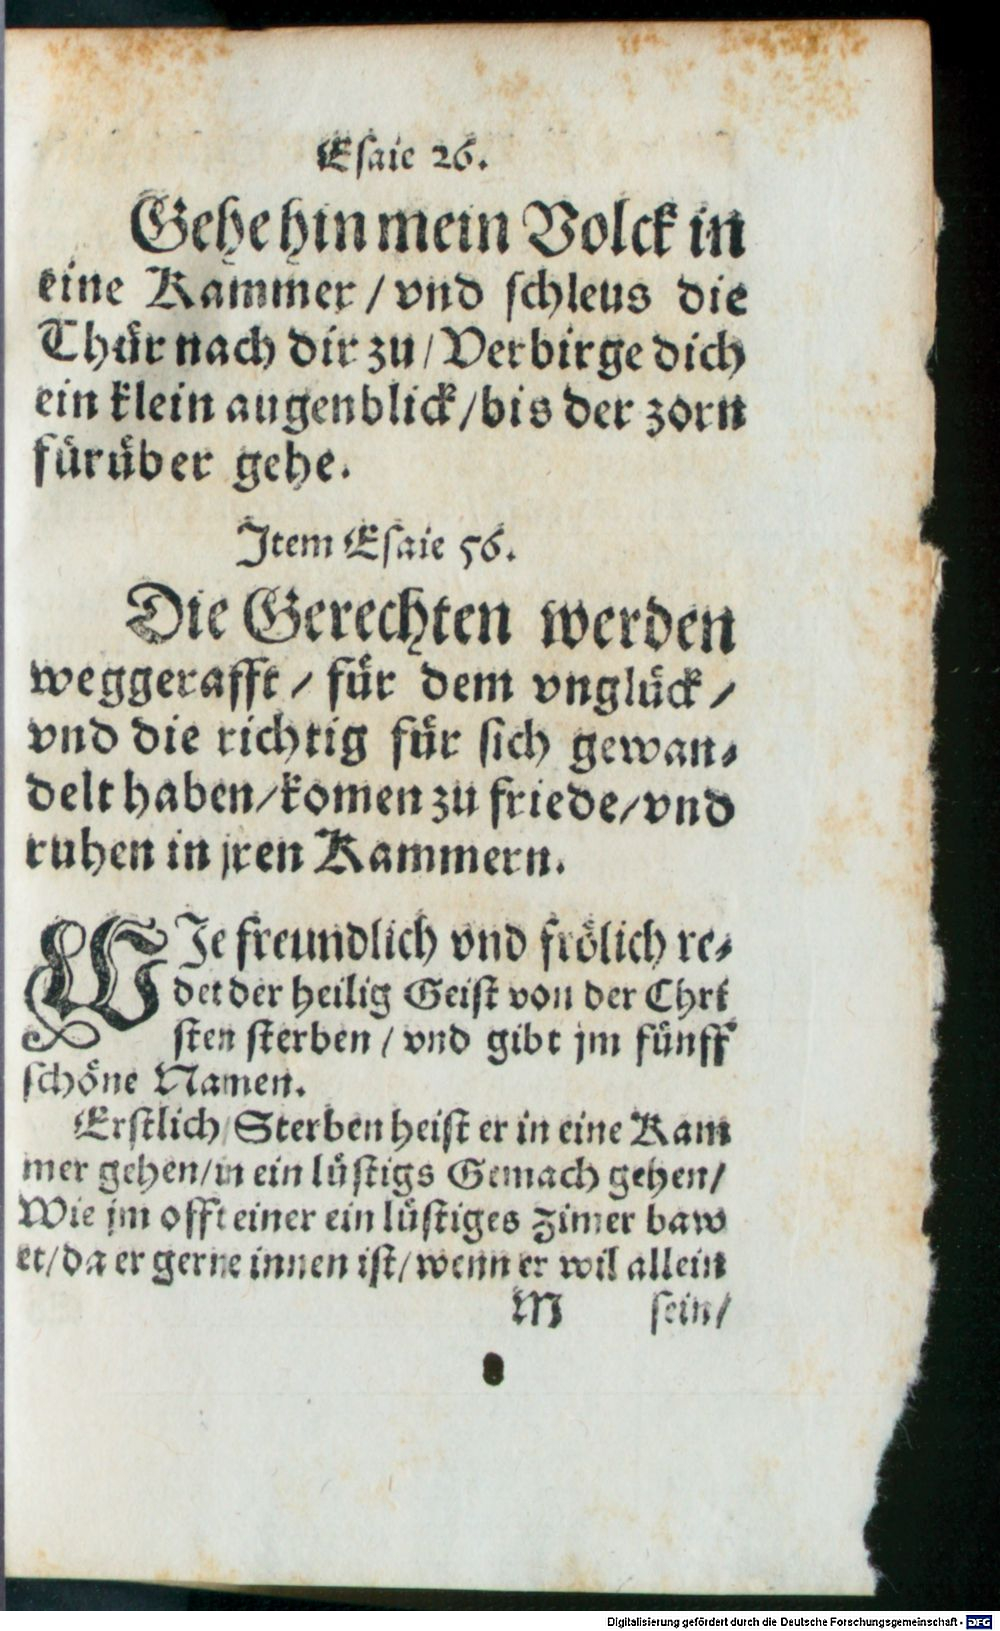 Esaie 26.
Gehe hin mein Volck in
eine Kammer / vnd schleus die
Thür nach dir zu / Verbirge dich
ein klein augenblick / bis der zorn
fürüber gehe.
Jtem Esaie 56.
Die Gerechten werden
weggerafft / für dem vnglück /
vnd die richtig für sich gewan⸗
delt haben / komen zu friede / vnd
ruhen in jren Kammern.
WJe freundlich vnd frölich re⸗
det der heilig Geist von der Chri
sten sterben / vnd gibt jm fünff
schöne Namen.
Erstlich / Sterben heist er in eine Kam
mer gehen / in ein lüstigs Gemach gehen /
Wie jm offt einer ein lüstiges Zimer baw
et / da er gerne innen ist / wenn er wil allein
M sein /
Digitalisierung gefördert durch die Deutsche Forschungsgemeinschaft - DFG